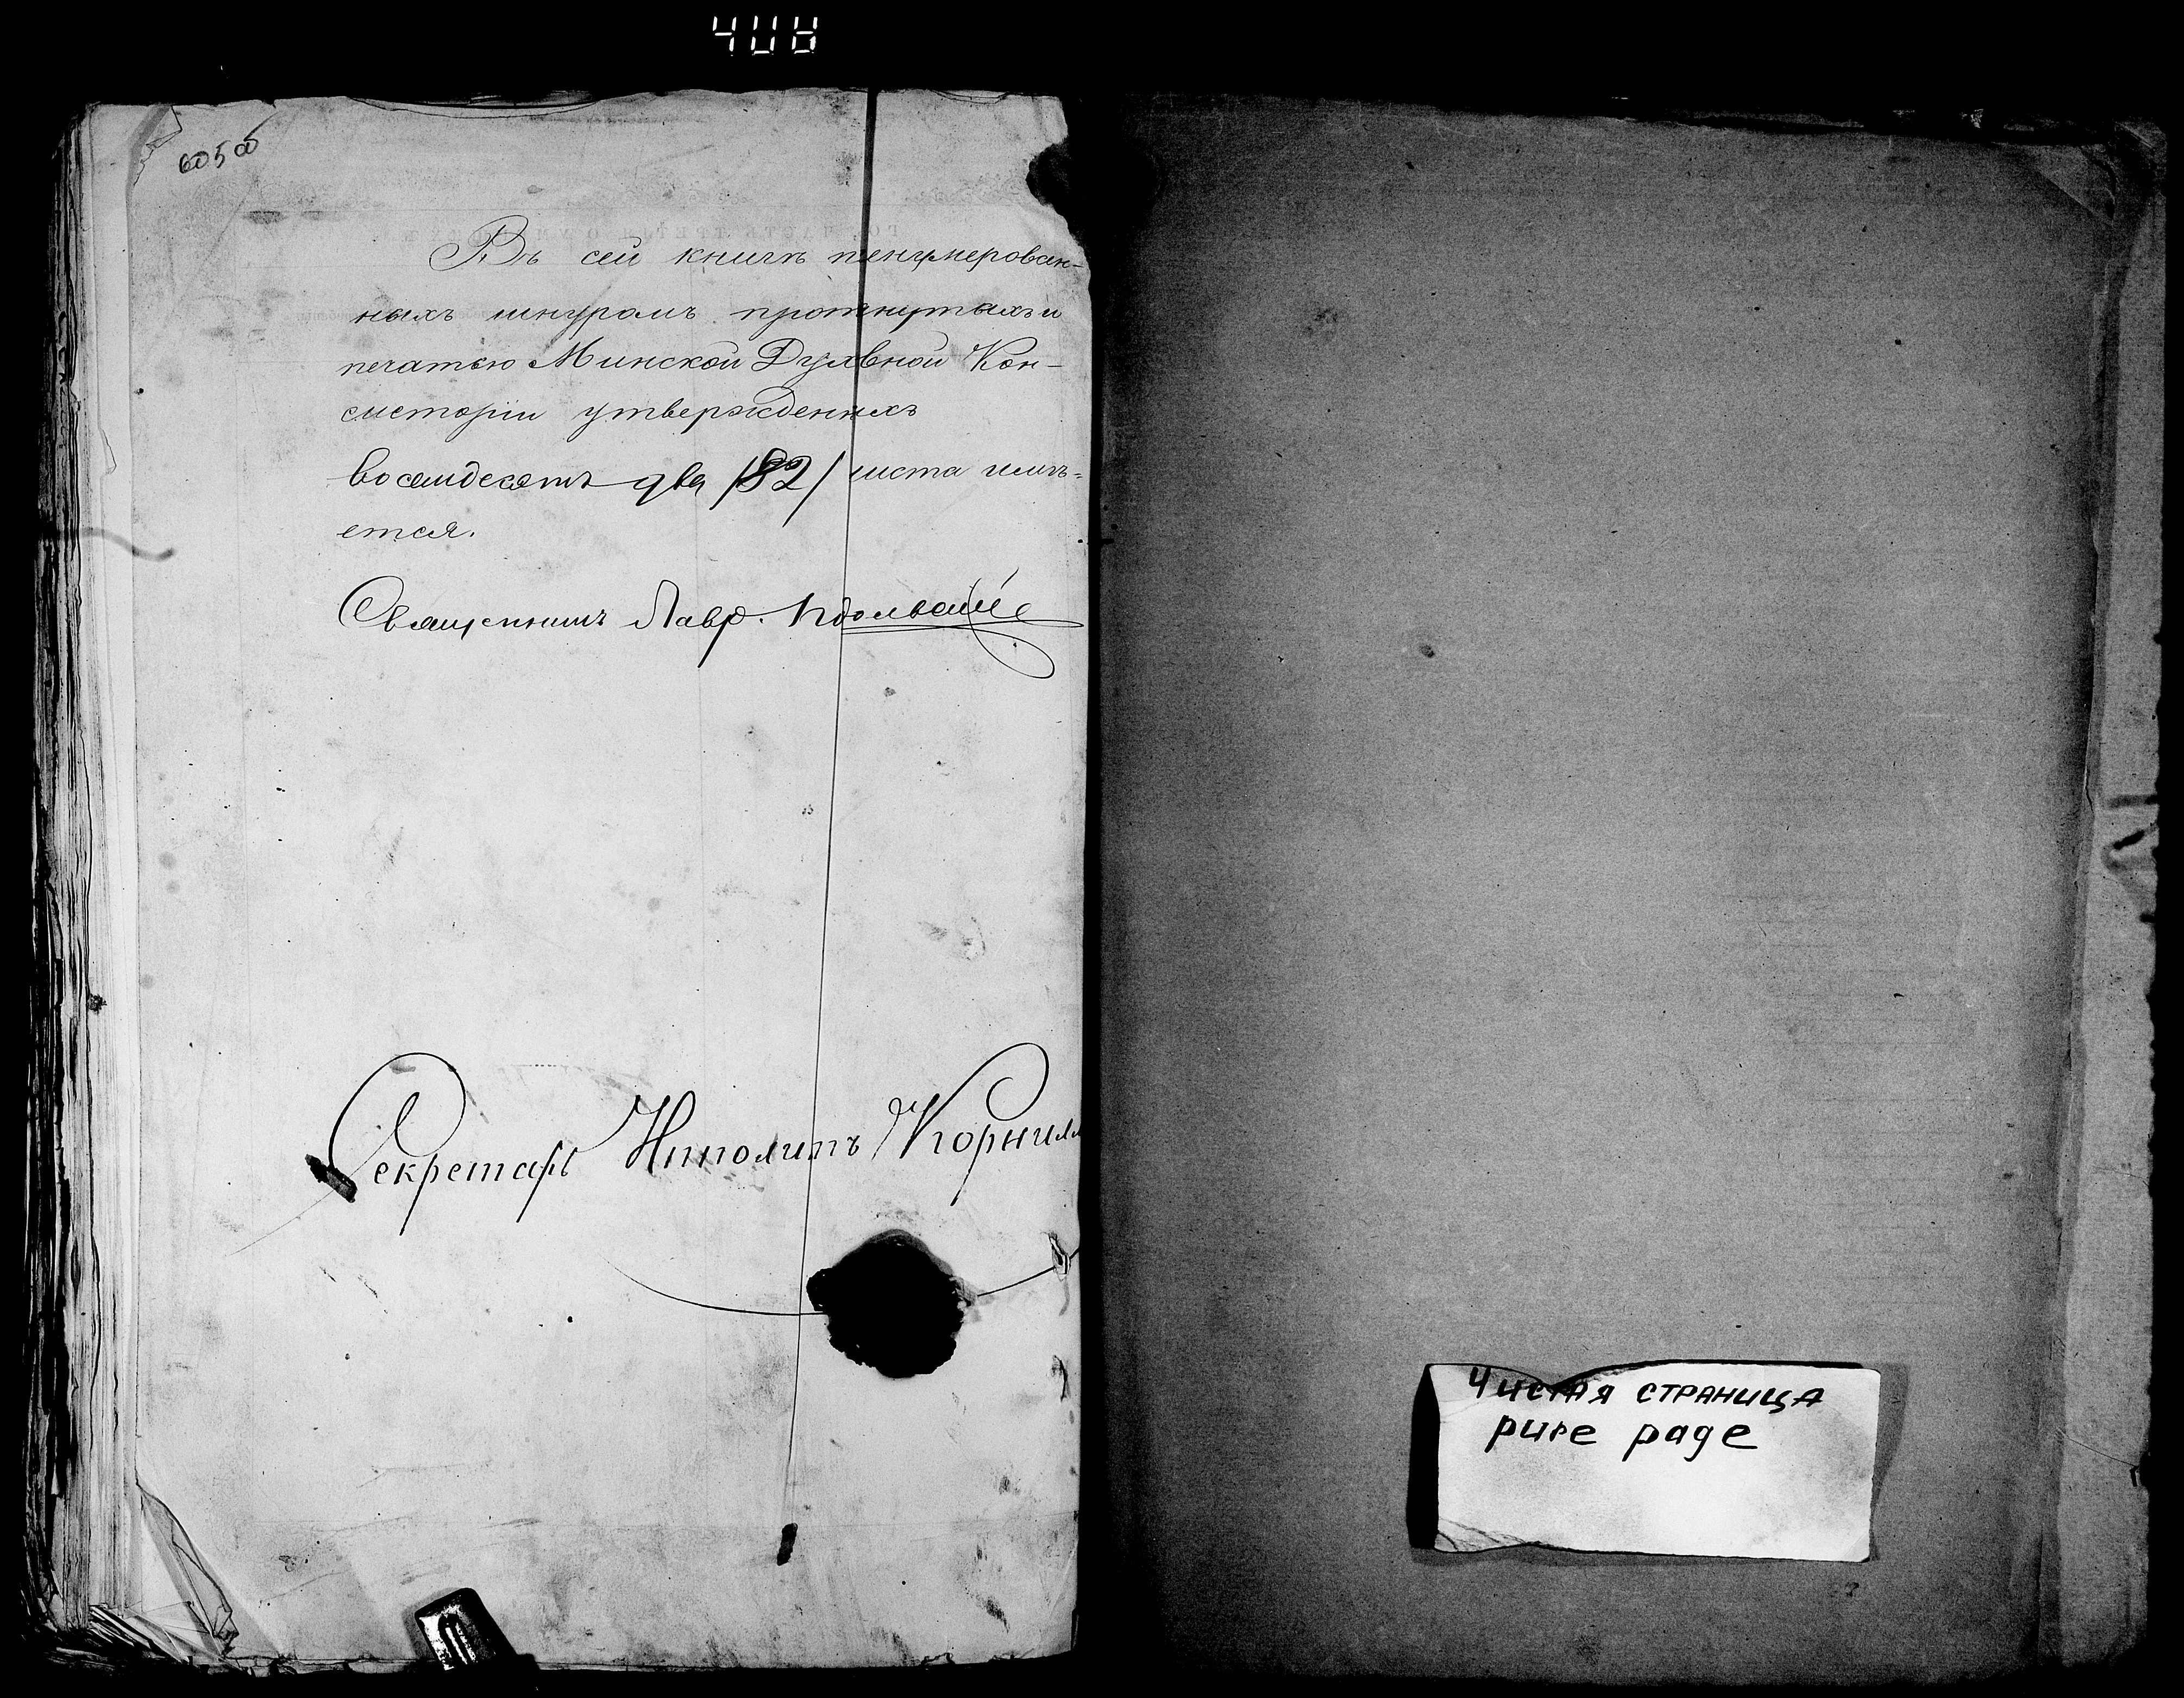 408
605 об
Въ сей книгѣ пенумерован-
ныхъ шнуромъ протнутыхъ и
печатью Минской Духовной Кон-
систоріи утвержденныхъ
восемдесятъ два /82/ листа имѣ-
ется.
Священникъ Лавр.
Секретарь Ипполитъ Корнил
Чистая страница
pure page